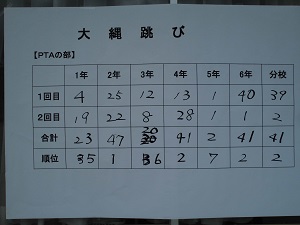 大縄跳び
【PTAの部】
1年 2年 3年 4年 5年 6年 分校
1回目 4 25 12 13 1 40 39
2回目 19 22 8 28 1 1 2
合計 23 47 20 41 2 41 41
順位 5 1 6 2 7 2 2